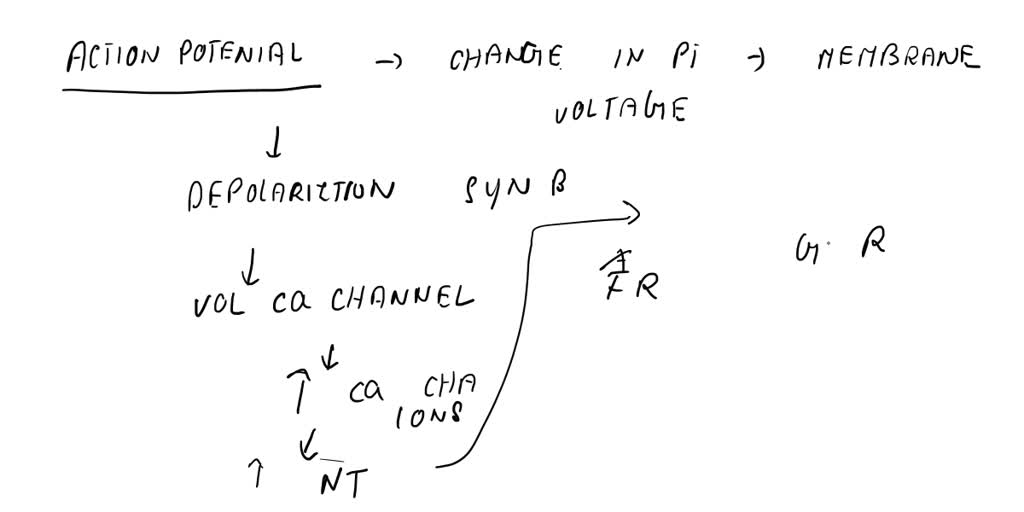 ACTION POTENIAL → CHANGE IN Pi → MEMBRANE
VOLTAGE
↓
DEPOLARIZTION SYN B
↓
VOL ca CHANNEL
↓
↑ ca CHA
IONS
↓
↑ NT
→
R
G. R